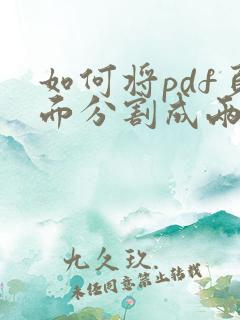 如何将pdf页
面分割成两
九久玖.
未经同意禁止转载